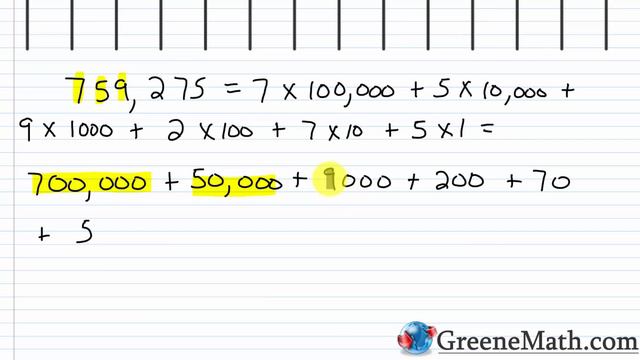 759,275 = 7 x 100,000 + 5 x 10,000 +
9 x 1000 + 2 x 100 + 7 x 10 + 5 x 1 =
700,000 + 50,000 + 9000 + 200 + 70
+ 5
GreeneMath.com